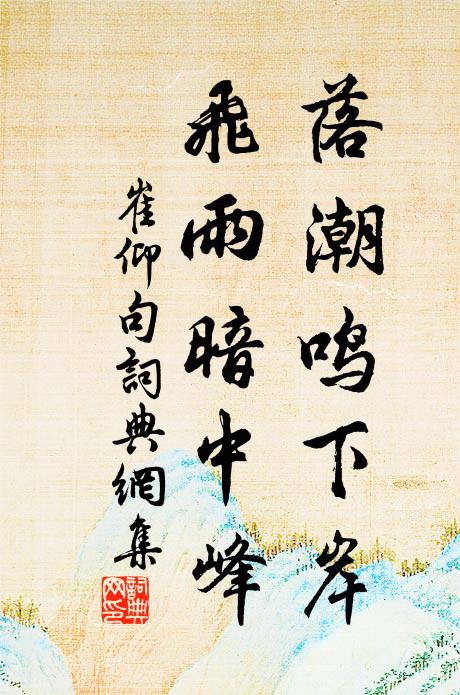 落潮鸣下岸
飛雨暗中峰
崔仰句詞典網集
詞典